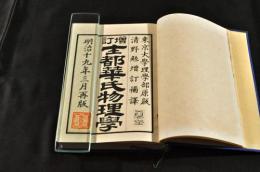 東京大學理學部原版
清野勉增訂補譯
增訂
士都華氏物理學
明治十九年三月再版